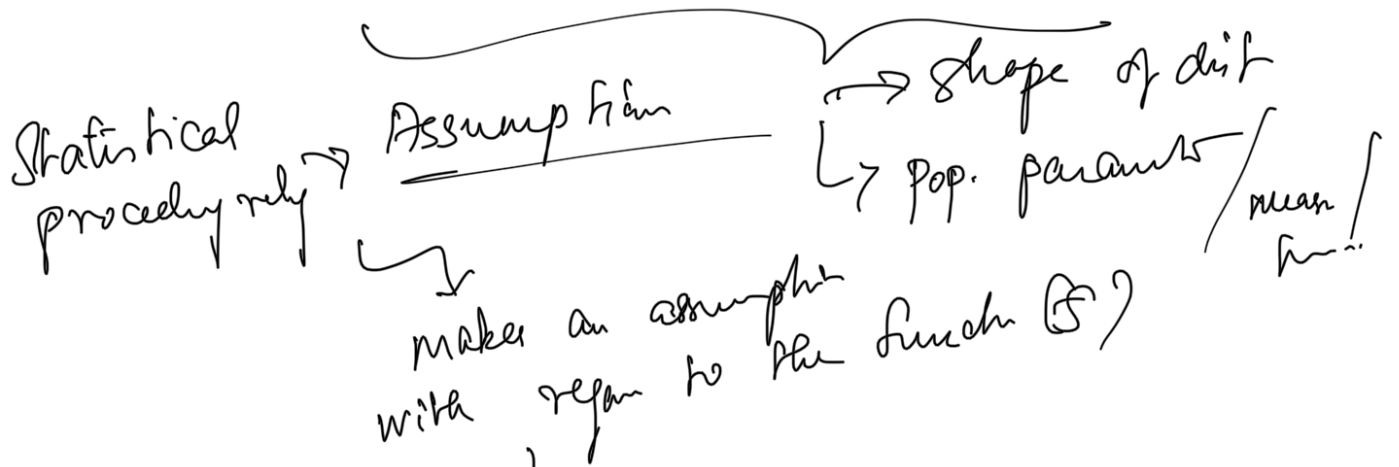 Statistical
procedures rely → Assumption
→ shape of dist
→ Pop. parameter / mean
makes an assumption
with regard to the function (f)